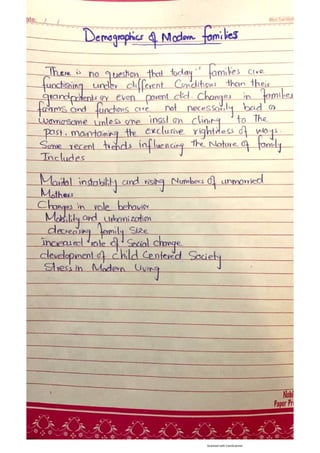 Demographics of Modern families
There is no question that today" families are
functioning under different Conditions than their
grandpatents or even parent did Changes in families
forms and functions are not necessarily bad or
worriesome unless one insist on clining to the
past. maintaning the exclusive rightness of ways.
Some recent trends influencing the Nature of family
Includes
Marital instability and rising Numbers of unmarried
Mothers
Changes in role behavior
Mobility and urbanization
decreasing family Size
increased role of Social change
development of child Centered Society
Stress in Modern living
Paper Pr
Scanned with CamScanner